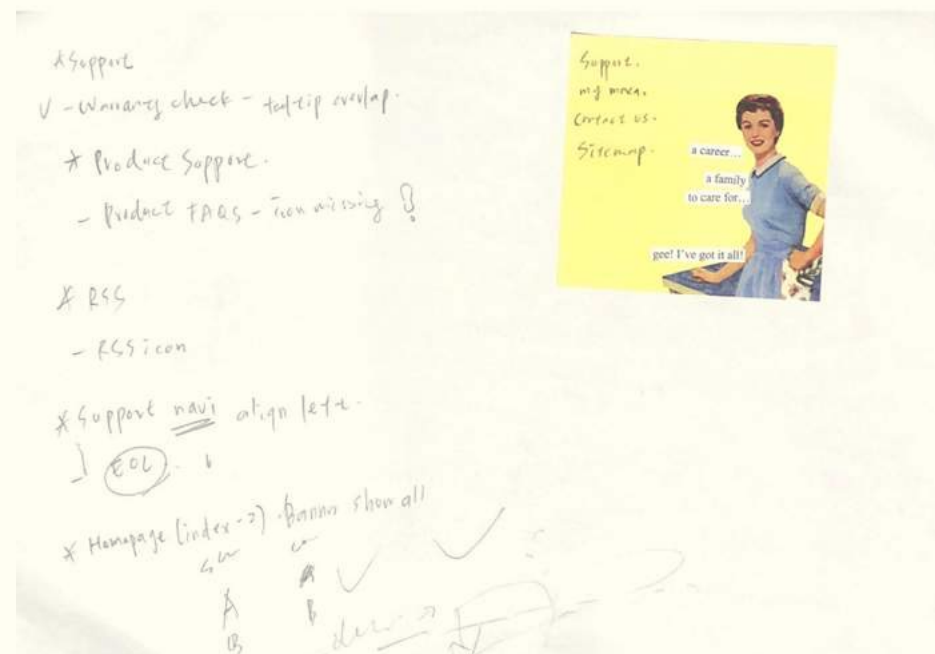 *Support
V - Warranty check - tooltip overlap.
* Product Support.
- Product FAQs - icon missing
* RSS
- RSS icon
*Support navi align left.
EOL
* Homepage (index-2) . Banner show all
A A
B B
Support.
my moxa.
Contact us.
Sitemap.
a career...
a family
to care for...
gee! I've got it all!